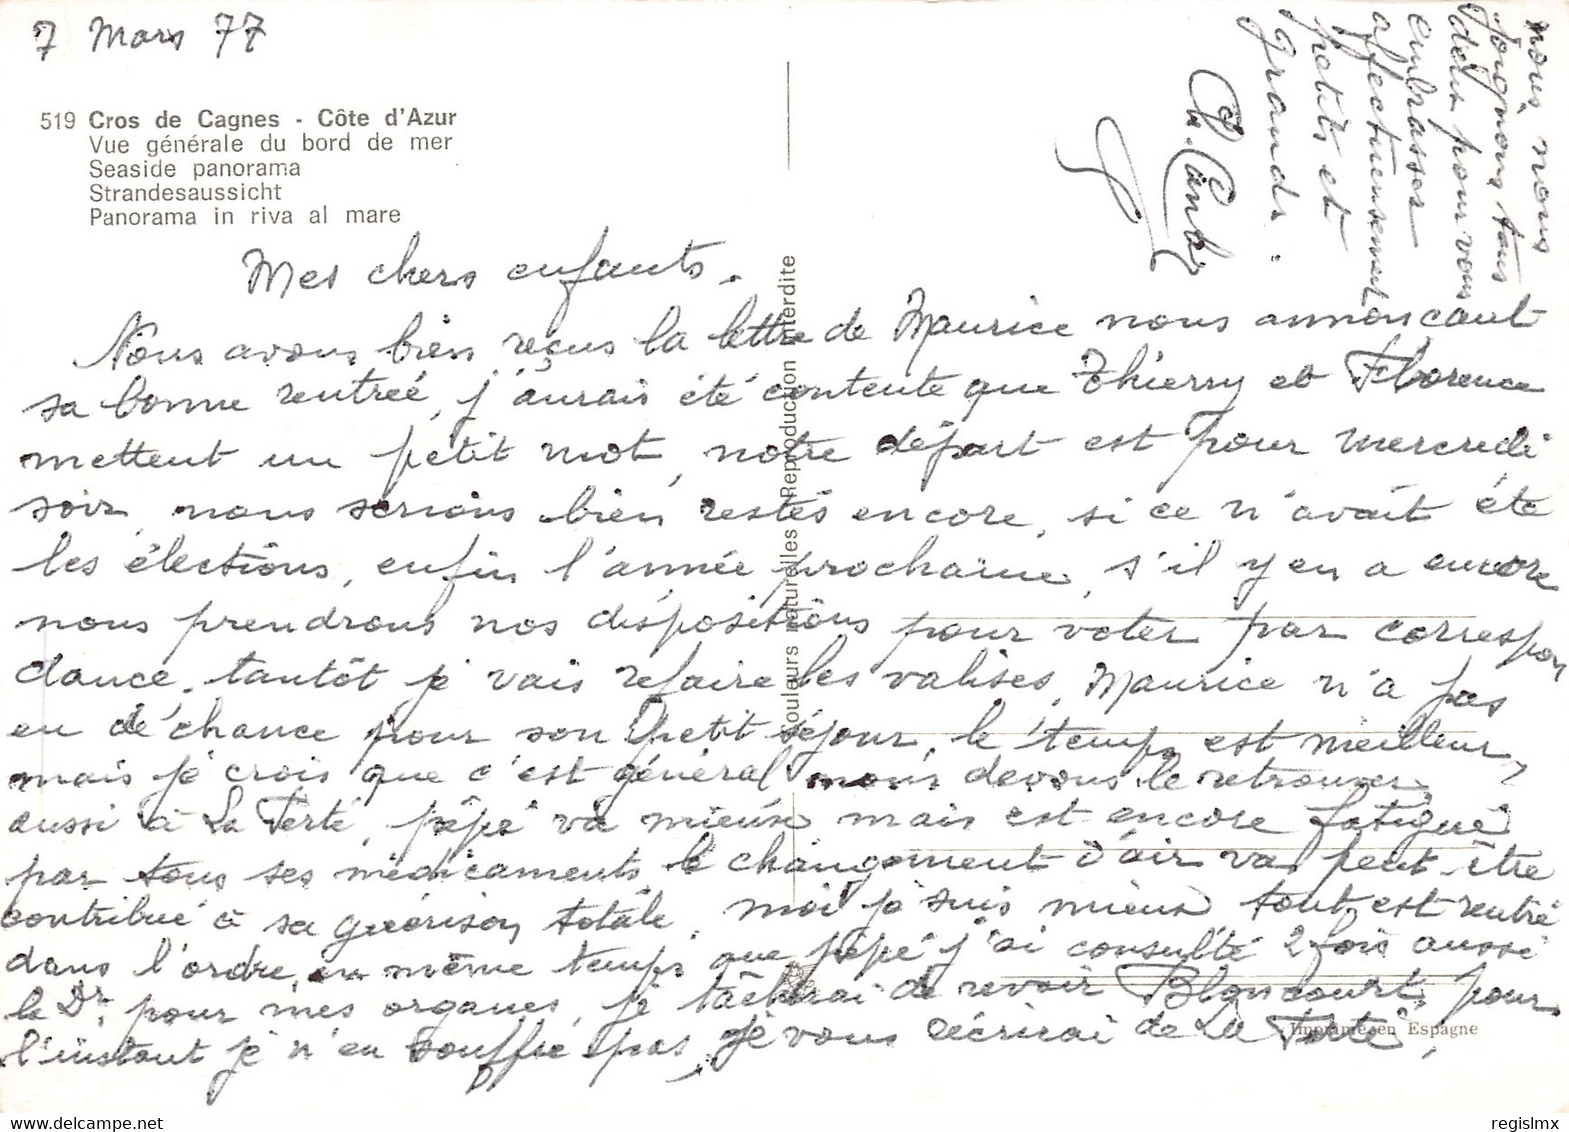 7 Mars 77
519 Cros de Cagnes - Côte d'Azur
Vue générale du bord de mer
Seaside panorama
Strandesaussicht
Panorama in riva al mare
Mes chers enfants.
Nous avons bien reçus la lettre de Maurice nous annoncant
sa bonne rentreé, j'aurais été contente que Thierry et Florence
mettent un petit mot, notre départ est pour mercredi
soir, nous serions bien restés encore, si ce n'avait été
les élections, enfin l'année prochaine, s'il y en a encore
nous prendrons nos dispositions pour voter par correspon
dance, tantôt je vais refaire les valises, Maurice n'a pas
eu de chance pour son petit séjour, le temps est meilleur,
mais je crois que c'est général nous devons le retrouver
aussi à La Ferté, pépé va mieux mais est encore fatigué
par tous ses médicaments le changement d'air va peut-être
contribué à sa guérison totale, moi je suis mieux tout est rentré
dans l'ordre, en même temps que pépé j'ai consulté 2 fois aussi
le Dr. pour mes organes, je tâcherai de revoir Bloncourt, pour
l'instant je n'en souffre pas, je vous écrirai de La Ferté,
nous, nous
joignons tous
deux pour vous
embrasser
affectueusement
petits et
grands.
Couleurs naturelles Reproduction interdite
Imprimé en Espagne
www.delcampe.net
regislmx